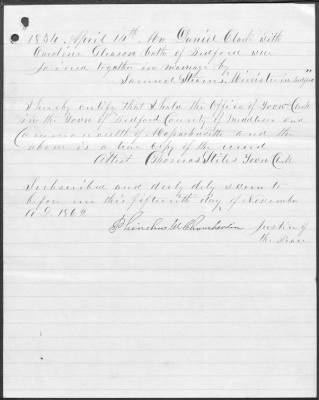 "1834 April 14th Mr. Daniel Clark with
Caroline Gleason both of Bedford were
joined together in marriage by
Samuel Stearns, Minister in Bedford"
I hereby certify that I hold the Office of Town Clerk
in the Town of Bedford County of Middlesex and
Commonwealth of Massachusetts and the
above is a true copy of the record
Attest Thomas Stiles Town Clerk
Subscribed and duly sworn to
before me this fifteenth day of November
A.D. 1862
Chamberlin Justice of
the Peace